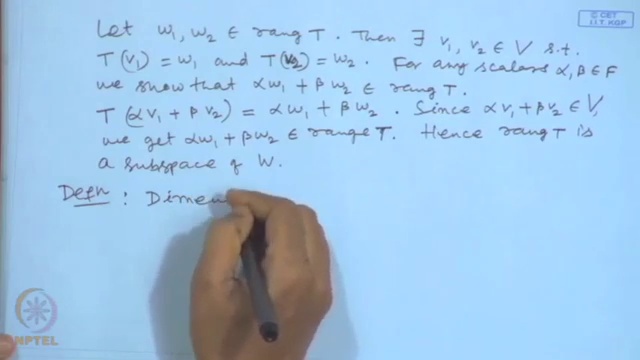 © CET
I.I.T. KGP
Let w₁, w₂ ∈ rang T. Then ∃ v₁, v₂ ∈ V s.t.
T(v₁) = w₁ and T(v₂) = w₂. For any scalars α, β ∈ F
we show that αw₁ + βw₂ ∈ rang T.
T(αv₁ + βv₂) = αw₁ + βw₂. Since αv₁ + βv₂ ∈ V,
we get αw₁ + βw₂ ∈ range T. Hence rang T is
a subspace of W.
Defn : Dimen
NPTEL